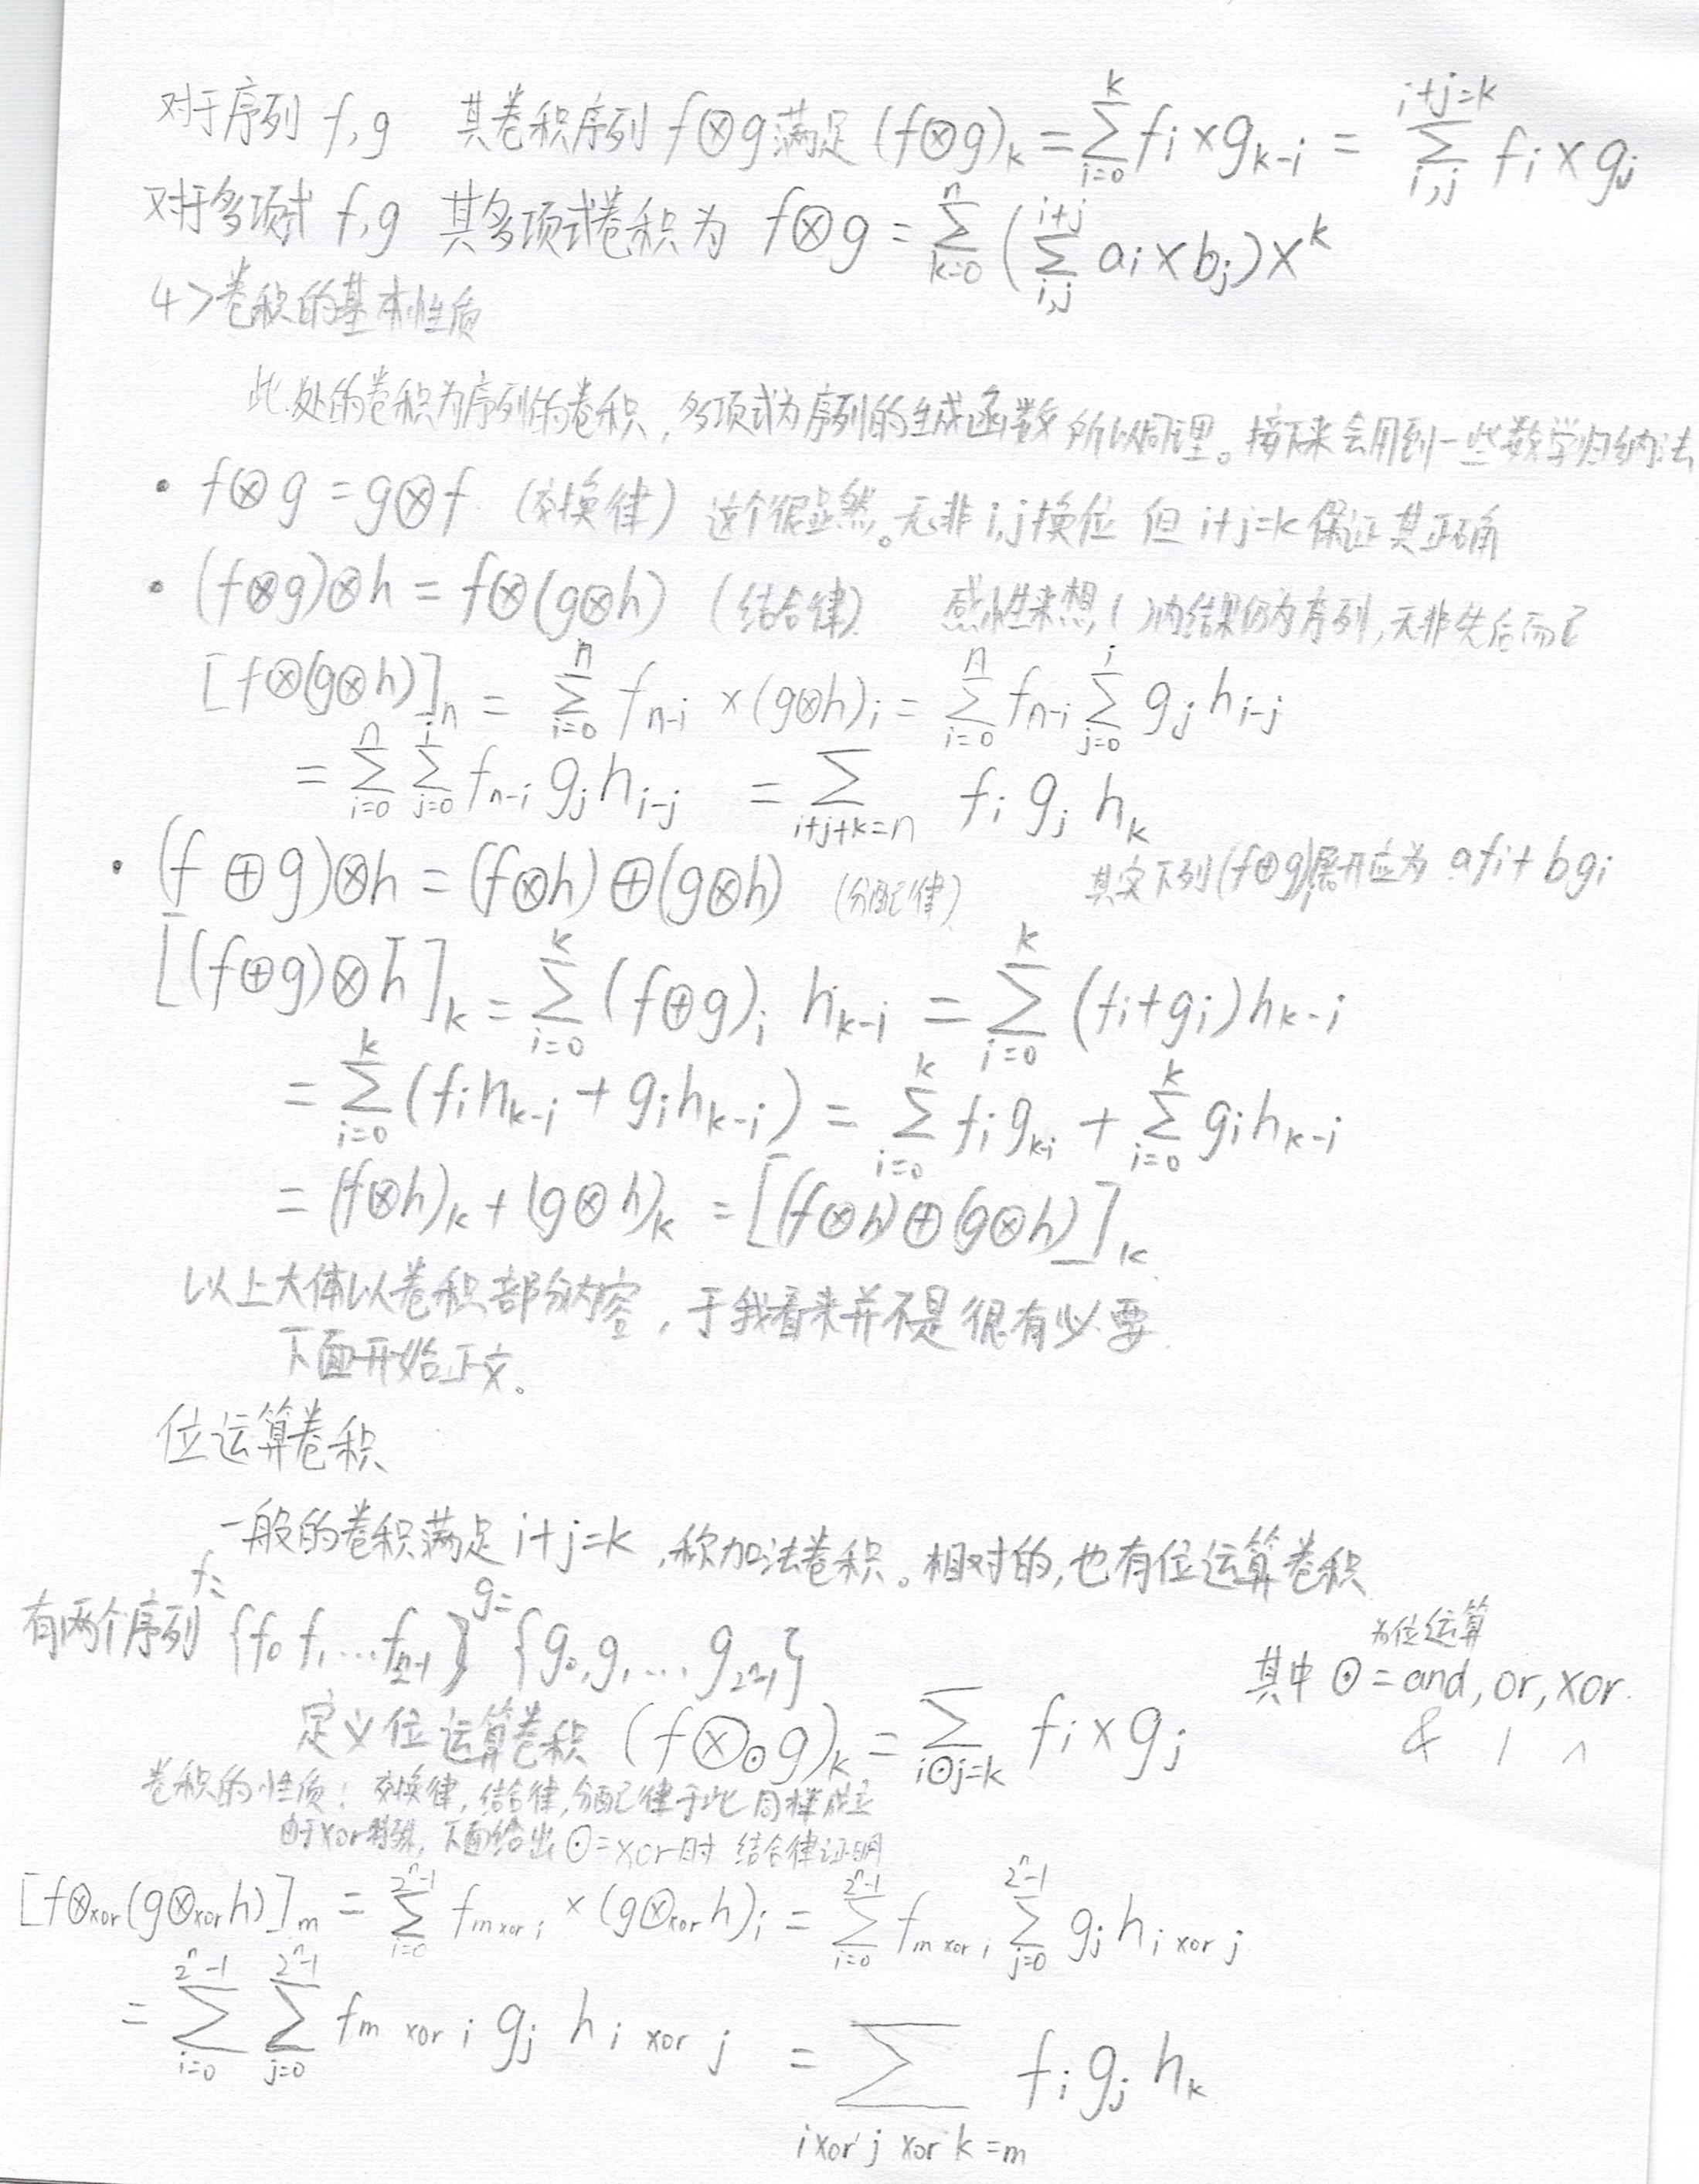 对于序列 f,g 其卷积序列 f⊗g 满足 (f⊗g)_k = ∑_{i=0}^{k} f_i × g_{k-i} = ∑_{i,j}^{i+j=k} f_i × g_j
对于多项式 f,g 其多项式卷积为 f⊗g = ∑_{k=0}^{n} (∑_{i,j}^{i+j} a_i × b_j) x^k
4> 卷积的基本性质
此处的卷积为序列的卷积,多项式为序列的生成函数 所以同理。接下来会用到一些数学归纳法
• f⊗g = g⊗f (交换律) 这个很显然。无非 i,j 换位 但 i+j=k 保证其正确
• (f⊗g)⊗h = f⊗(g⊗h) (结合律) 感性来想,( )内结果仍为序列,无非先后而已
[f⊗(g⊗h)]_n = ∑_{i=0}^{n} f_{n-i} × (g⊗h)_i = ∑_{i=0}^{n} f_{n-i} ∑_{j=0}^{i} g_j h_{i-j}
= ∑_{i=0}^{n} ∑_{j=0}^{i} f_{n-i} g_j h_{i-j} = ∑_{i+j+k=n} f_i g_j h_k
• (f⊕g)⊗h = (f⊗h)⊕(g⊗h) (分配律) 其实下列(f⊕g)_i展开应为 af_i + bg_i
[(f⊕g)⊗h]_k = ∑_{i=0}^{k} (f⊕g)_i h_{k-i} = ∑_{i=0}^{k} (f_i+g_i)h_{k-i}
= ∑_{i=0}^{k} (f_i h_{k-i} + g_i h_{k-i}) = ∑_{i=0}^{k} f_i g_{k-i} + ∑_{i=0}^{k} g_i h_{k-i}
= (f⊗h)_k + (g⊗h)_k = [(f⊗h)⊕(g⊗h)]_k
以上大体以卷积部分内容,于我看来并不是很有必要.
下面开始正文。
位运算卷积
一般的卷积满足 i+j=k ,称加法卷积。相对的,也有位运算卷积
有两个序列 f= {f_0 f_1 ... f_{2^n-1}} g= {g_0, g_1 ... g_{2^n-1}}
其中 ⊙ 为位运算 = and, or, xor.
& | ^
定义位运算卷积 (f⊗_⊙ g)_k = ∑_{i⊙j=k} f_i × g_j
卷积的性质: 交换律,结合律,分配律于此同样成立
由于xor特殊, 下面给出 ⊙=xor时 结合律证明
[f⊗_{xor}(g⊗_{xor}h)]_m = ∑_{i=0}^{2^n-1} f_{m xor i} × (g⊗_{xor}h)_i = ∑_{i=0}^{2^n-1} f_{m xor i} ∑_{j=0}^{2^n-1} g_j h_{i xor j}
= ∑_{i=0}^{2^n-1} ∑_{j=0}^{2^n-1} f_{m xor i} g_j h_{i xor j} = ∑_{i xor j xor k = m} f_i g_j h_k